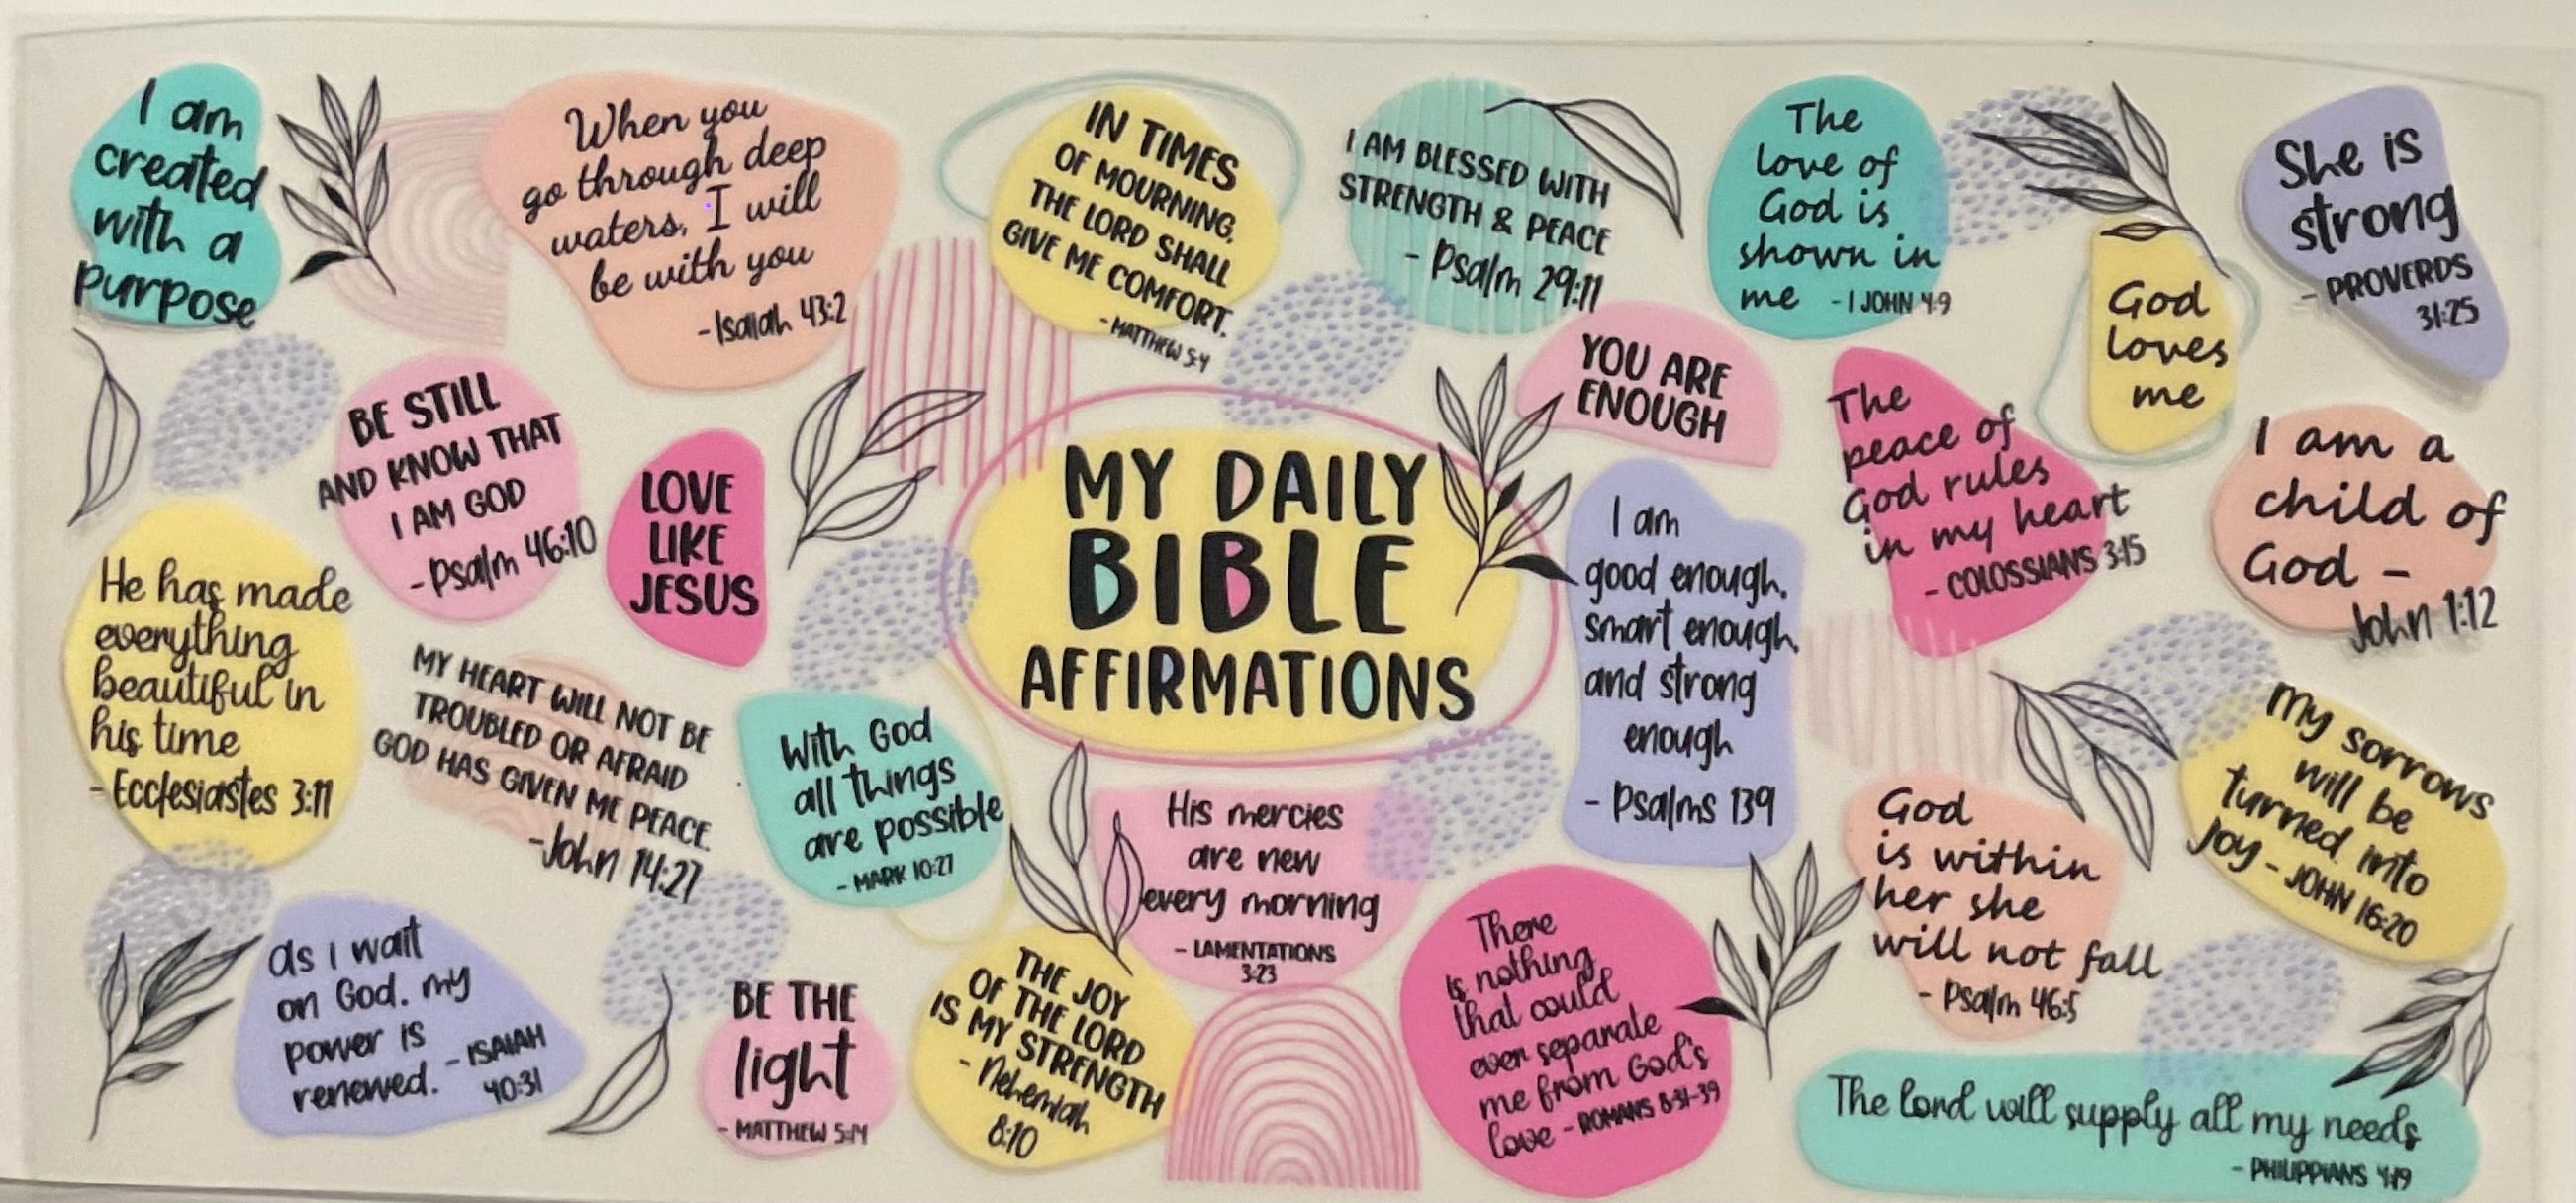 I am
created
with a
purpose
When you
go through deep
waters, I will
be with you
-Isaiah 43:2
IN TIMES
OF MOURNING,
THE LORD SHALL
GIVE ME COMFORT.
- MATTHEW 5:4
I AM BLESSED WITH
STRENGTH & PEACE
- Psalm 29:11
The
love of
God is
shown in
me - 1 JOHN 4:9
She is
strong
- PROVERDS
31:25
God
loves
me
YOU ARE
ENOUGH
BE STILL
AND KNOW THAT
I AM GOD
- Psalm 46:10
LOVE
LIKE
JESUS
MY DAILY
BIBLE
AFFIRMATIONS
The
peace of
God rules
in my heart
- COLOSSIANS 3:15
I am a
child of
God -
John 1:12
I am
good enough,
smart enough,
and strong
enough
- Psalms 139
He has made
everything
beautiful in
his time
- Ecclesiastes 3:11
MY HEART WILL NOT BE
TROUBLED OR AFRAID
GOD HAS GIVEN ME PEACE.
-John 14:27
With God
all things
are possible
- MARK 10:27
His mercies
are new
every morning
- LAMENTATIONS
3:23
God
is within
her she
will not fall
- Psalm 46:5
My sorrows
will be
turned into
Joy - JOHN 16:20
as I wait
on God, my
power is
renewed. - ISAIAH
40:31
BE THE
light
- MATTHEW 5:14
THE JOY
OF THE LORD
IS MY STRENGTH
- Nehemiah
8:10
There
is nothing
that could
ever separate
me from God's
love - ROMANS 8:31-39
The lord will supply all my needs
- PHILIPPIANS 4:19